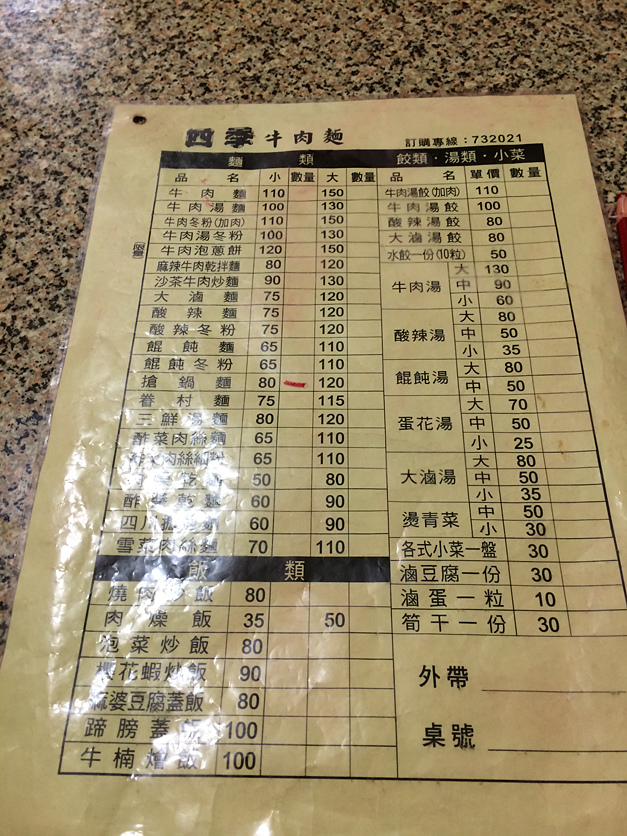 四季牛肉麵
訂購專線：732021
麵 類
品 名 小 數量 大 數量
牛肉麵 110 150
牛肉湯麵 100 130
牛肉冬粉(加肉) 110 150
牛肉湯冬粉 100 130
限量 牛肉泡蔥餅 120 150
麻辣牛肉乾拌麵 80 120
沙茶牛肉炒麵 90 130
大滷麵 75 120
酸辣麵 75 120
酸辣冬粉 75 120
餛飩麵 65 110
餛飩冬粉 65 110
搶鍋麵 80 120
眷村麵 75 115
三鮮湯麵 80 120
酢菜肉絲麵 65 110
肉絲 65 110
50 80
酢 乾 60 90
四川 60 90
雪菜肉絲麵 70 110
飯 類
燒肉炒飯 80
肉燥飯 35 50
泡菜炒飯 80
櫻花蝦炒飯 90
麻婆豆腐蓋飯 80
蹄膀蓋飯 100
牛楠燴飯 100
餃類・湯類・小菜
品 名 單價 數量
牛肉湯餃(加肉) 110
牛肉湯餃 100
酸辣湯餃 80
大滷湯餃 80
水餃一份(10粒) 50
牛肉湯 大 130
中 90
小 60
酸辣湯 大 80
中 50
小 35
餛飩湯 大 80
中 50
蛋花湯 大 70
中 50
小 25
大滷湯 大 80
中 50
小 35
燙青菜 中 50
小 30
各式小菜一盤 30
滷豆腐一份 30
滷蛋一粒 10
筍干一份 30
外帶
桌號